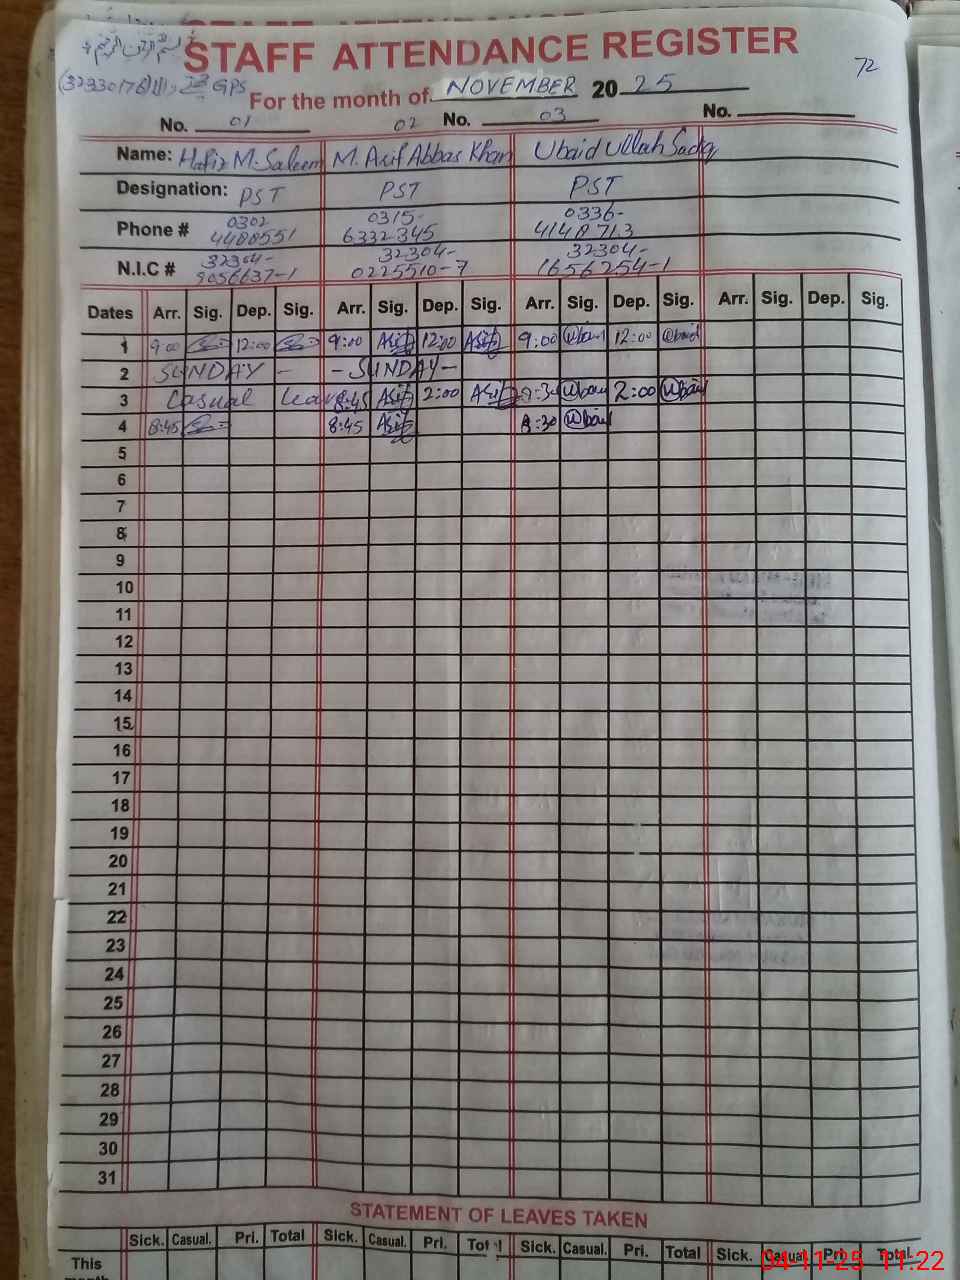 STAFF ATTENDANCE REGISTER
72
(32330176) GPS
For the month of NOVEMBER 2025
No. 01 02 No. 03 No.
Name: Hafiz M. Saleem M. Asif Abbas Khan Ubaid Ullah Sadiq
Designation: PST PST PST
Phone # 0302 4488551 0315-6332345 0336-4148713
N.I.C # 32304-9056637-1 32304-0225510-7 32304-1656254-1
Dates Arr. Sig. Dep. Sig. Arr. Sig. Dep. Sig. Arr. Sig. Dep. Sig. Arr. Sig. Dep. Sig.
1 9:00 12:00 9:00 Asif 12:00 Asif 9:00 Ubaid 12:00 Ubaid
2 SUNDAY - - SUNDAY -
3 Casual Leave 8:45 Asif 2:00 Asif 8:30 Ubaid 2:00 Ubaid
4 8:45 8:45 Asif 8:30 Ubaid
5
6
7
8
9
10
11
12
13
14
15
16
17
18
19
20
21
22
23
24
25
26
27
28
29
30
31
STATEMENT OF LEAVES TAKEN
Sick. Casual. Pri. Total Sick. Casual. Pri. Total Sick. Casual. Pri. Total Sick. Casual. Pri. Total
This
month
04-11-25 11:22